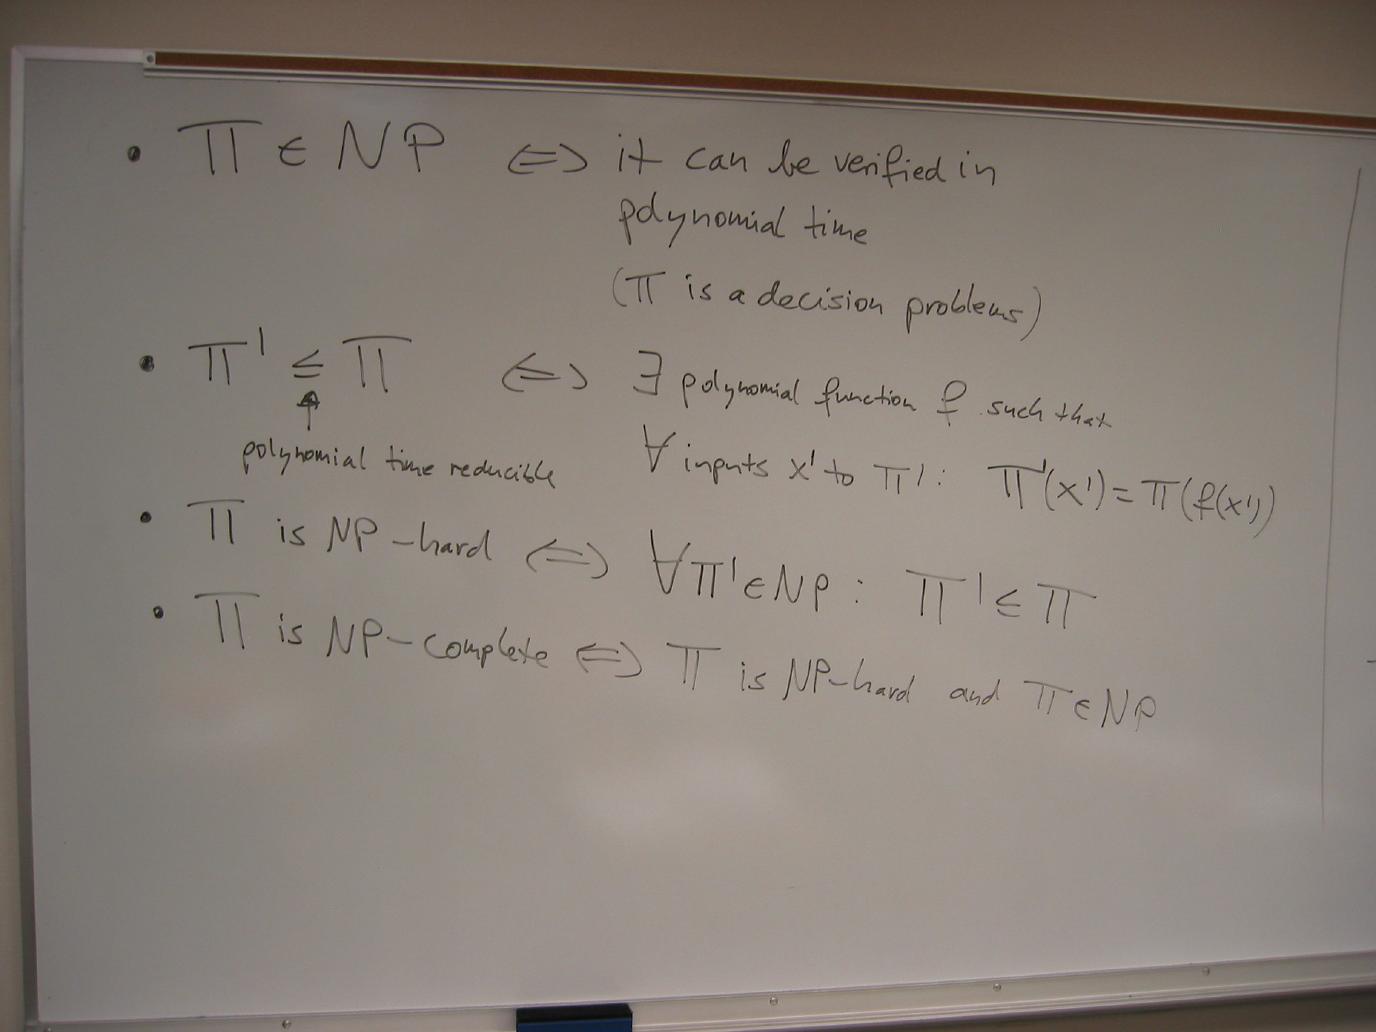 • Π ∈ NP ⇔ it can be verified in
polynomial time
(Π is a decision problems)
• Π' ≤ Π ⇔ ∃ polynomial function f such that
polynomial time reducible ∀ inputs x' to Π' : Π'(x') = Π(f(x'))
• Π is NP-hard ⇔ ∀Π' ∈ NP : Π' ≤ Π
• Π is NP-complete ⇔ Π is NP-hard and Π ∈ NP